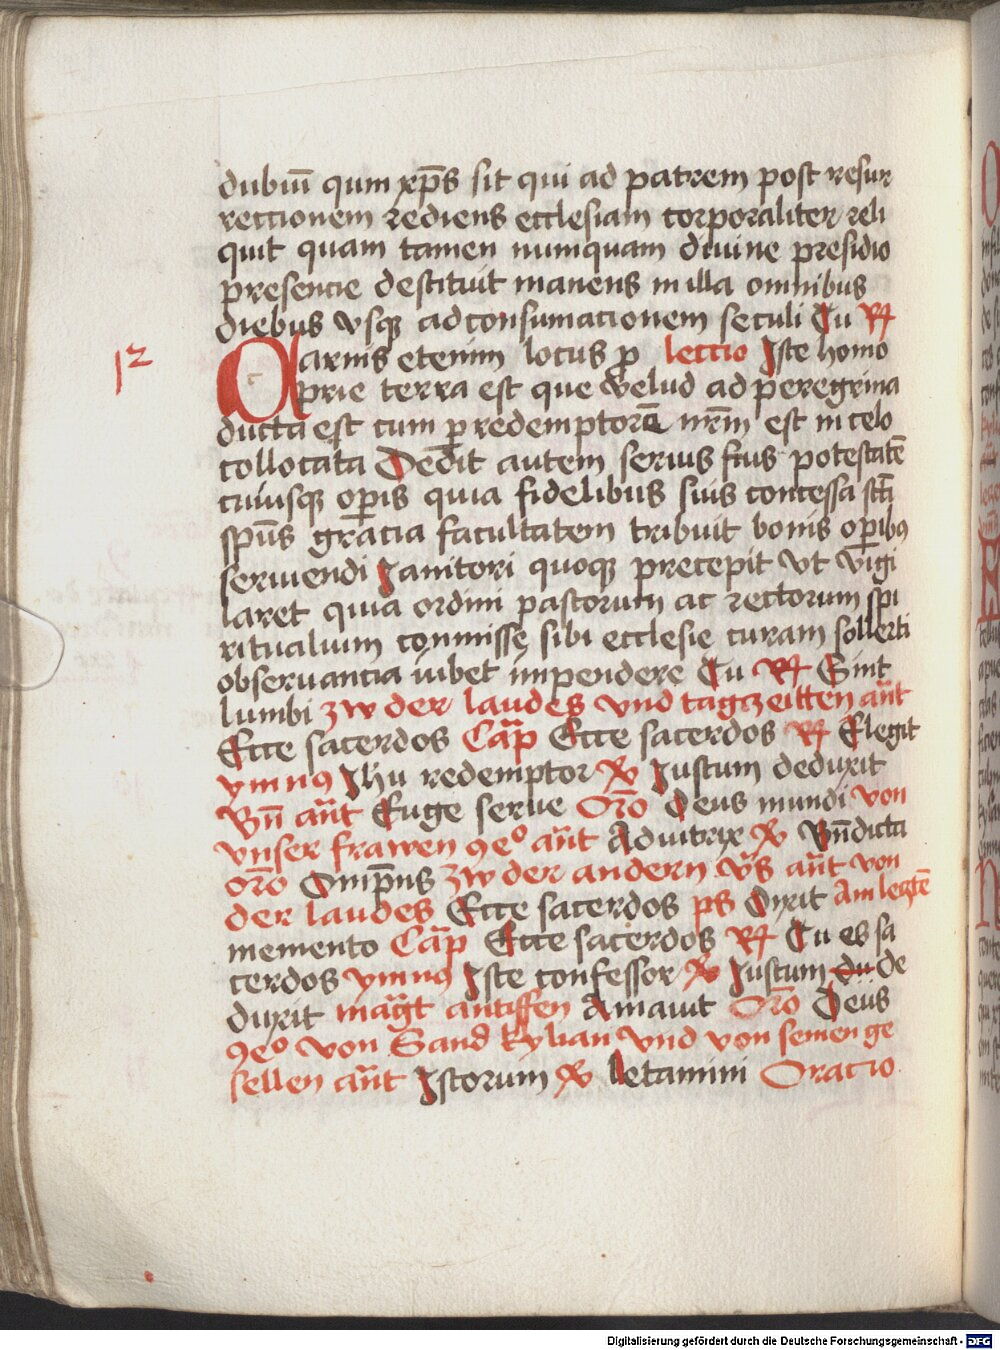 dubiū qum xp̄s sit qui ad patrem post resur
rectionem rediens ecclesiam corporaliter reli
quit quam tamen numquam divine presidio
presencie destituit manens in illa omnibus
diebus vsqꝫ ad consumacionem seculi Tu R
12
Carnis etenim locus ꝓ lectio Iste homo
prie terra est que velud ad peregrina
ducta est cum ꝑ redemptorē nrm̄ est in celo
collocata Dedit autem seruis suis potestatē
cuiusqꝫ oꝑis quia fidelibus suis concessa scī
spūs gracia facultatem tribuit bonis oꝑibꝯ
seruiendi Janitori quoqꝫ precepit vt vigi
laret quia ordini pastorum ac rectorum spi
ritualium commisse sibi ecclesie curam sollerti
obseruancia iubet impendere Tu R Sint
lumbi zw der laudes vnd tagzeitten an̄t
Ecce sacerdos Cap̄ Ecce sacerdos R Elegit
ymnꝯ Jhu redemptor V Justum deduxit
Bn̄ an̄t Euge serue Orō Deus mundi von
vnser frawen ꝯeº an̄t Adiutrix V Bn̄dicta
orō Omp̄ns zw der andern vs̄ an̄t von
der laudes Ecce sacerdos ps Dyxit Am lecztē
memento Cap̄ Ecce sacerdos R Tu es sa
cerdos ymnꝯ Iste confessor V Justum du de
duxit maḡt antiffen Amauit Orō Deus
ꝯeº von Sand kylian vnd von semen ge
sellen an̄t Istorum V letamini Oracio
Digitalisierung gefördert durch die Deutsche Forschungsgemeinschaft - DFG